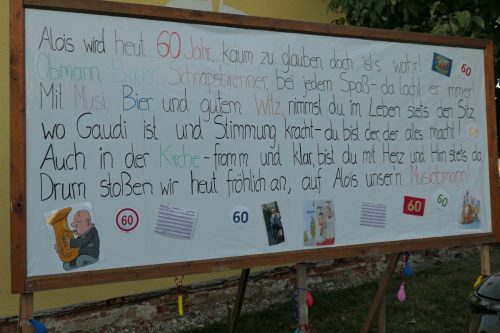 Alois wird heut 60 Jahr, kaum zu glauben, doch ist's wahr!
Obmann, Brauer, Schnapsbrenner, bei jedem Spaß - da lacht er immer!
Mit Musi, Bier und gutem Witz, nimmst du im Leben stets den Sitz,
wo Gaudi ist und Stimmung kracht - du bist der, der alles macht!
Auch in der Kirche - fromm und klar, bist du mit Herz und Hirn stets da
Drum stoßen wir heut fröhlich an, auf Alois unser'n Musiobmann!
60
60
60
60
60